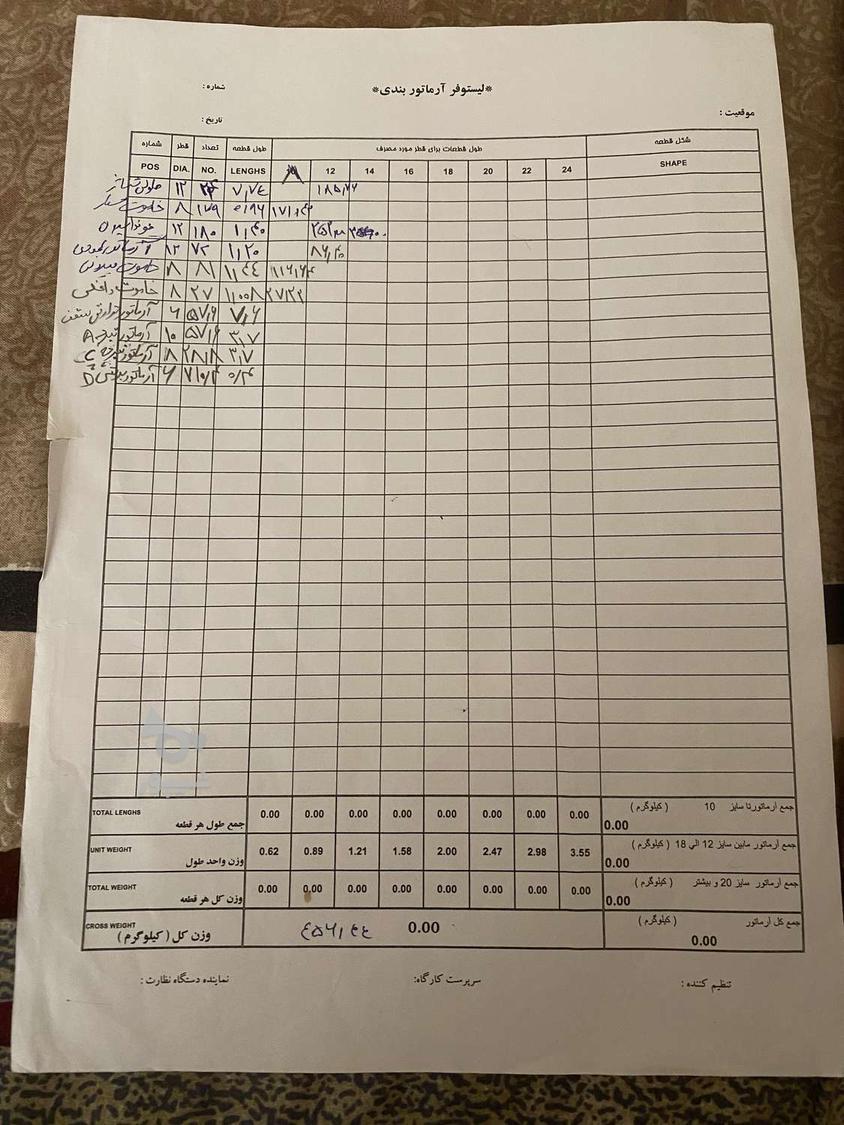 *لیستوفر آرماتور بندی*
شماره :
موقعیت :
تاریخ :
شماره قطر تعداد طول قطعه طول قطعات برای قطر مورد مصرف شکل قطعه
POS DIA. NO. LENGHS 12 14 16 18 20 22 24 SHAPE
۱۲ ۲۴ ۷,۷۴ ۱۸۵,۷۶
خاموت ۸ ۱۷۹ ۰,۹۶ ۱۷۱,۸۴
۱۲ ۱۸۰ ۱,۴۰ ۲۵۲
آرماتور ۱۲ ۷۲ ۱,۲۰ ۸۶,۴۰
خاموت ۸ ۸۱ ۱,۴۴ ۱۱۶,۶۴
خاموت داخلی ۸ ۲۷ ۱,۰۰۸ ۲۷,۲۲
آرماتور حرارتی سقف ۶ ۵۷,۶ ۷,۶
آرماتور تیرچه A ۱۰ ۵۷,۶ ۳,۷
آرماتور تیرچه C ۸ ۲۸,۸ ۳,۷
آرماتور D ۶ ۷۱۰,۴ ۰,۴
TOTAL LENGHS جمع طول هر قطعه 0.00 0.00 0.00 0.00 0.00 0.00 0.00 0.00 جمع آرماتورتا سایز 10 ( کیلوگرم ) 0.00
UNIT WEIGHT وزن واحد طول 0.62 0.89 1.21 1.58 2.00 2.47 2.98 3.55 جمع آرماتور مابین سایز 12 الی 18 ( کیلوگرم ) 0.00
TOTAL WEIGHT وزن کل هر قطعه 0.00 0.00 0.00 0.00 0.00 0.00 0.00 0.00 جمع آرماتور سایز 20 و بیشتر ( کیلوگرم ) 0.00
CROSS WEIGHT وزن کل ( کیلوگرم ) ٤٥٦,٤٤ 0.00 جمع کل آرماتور ( کیلوگرم ) 0.00
تنظیم کننده : سرپرست کارگاه: نماینده دستگاه نظارت :